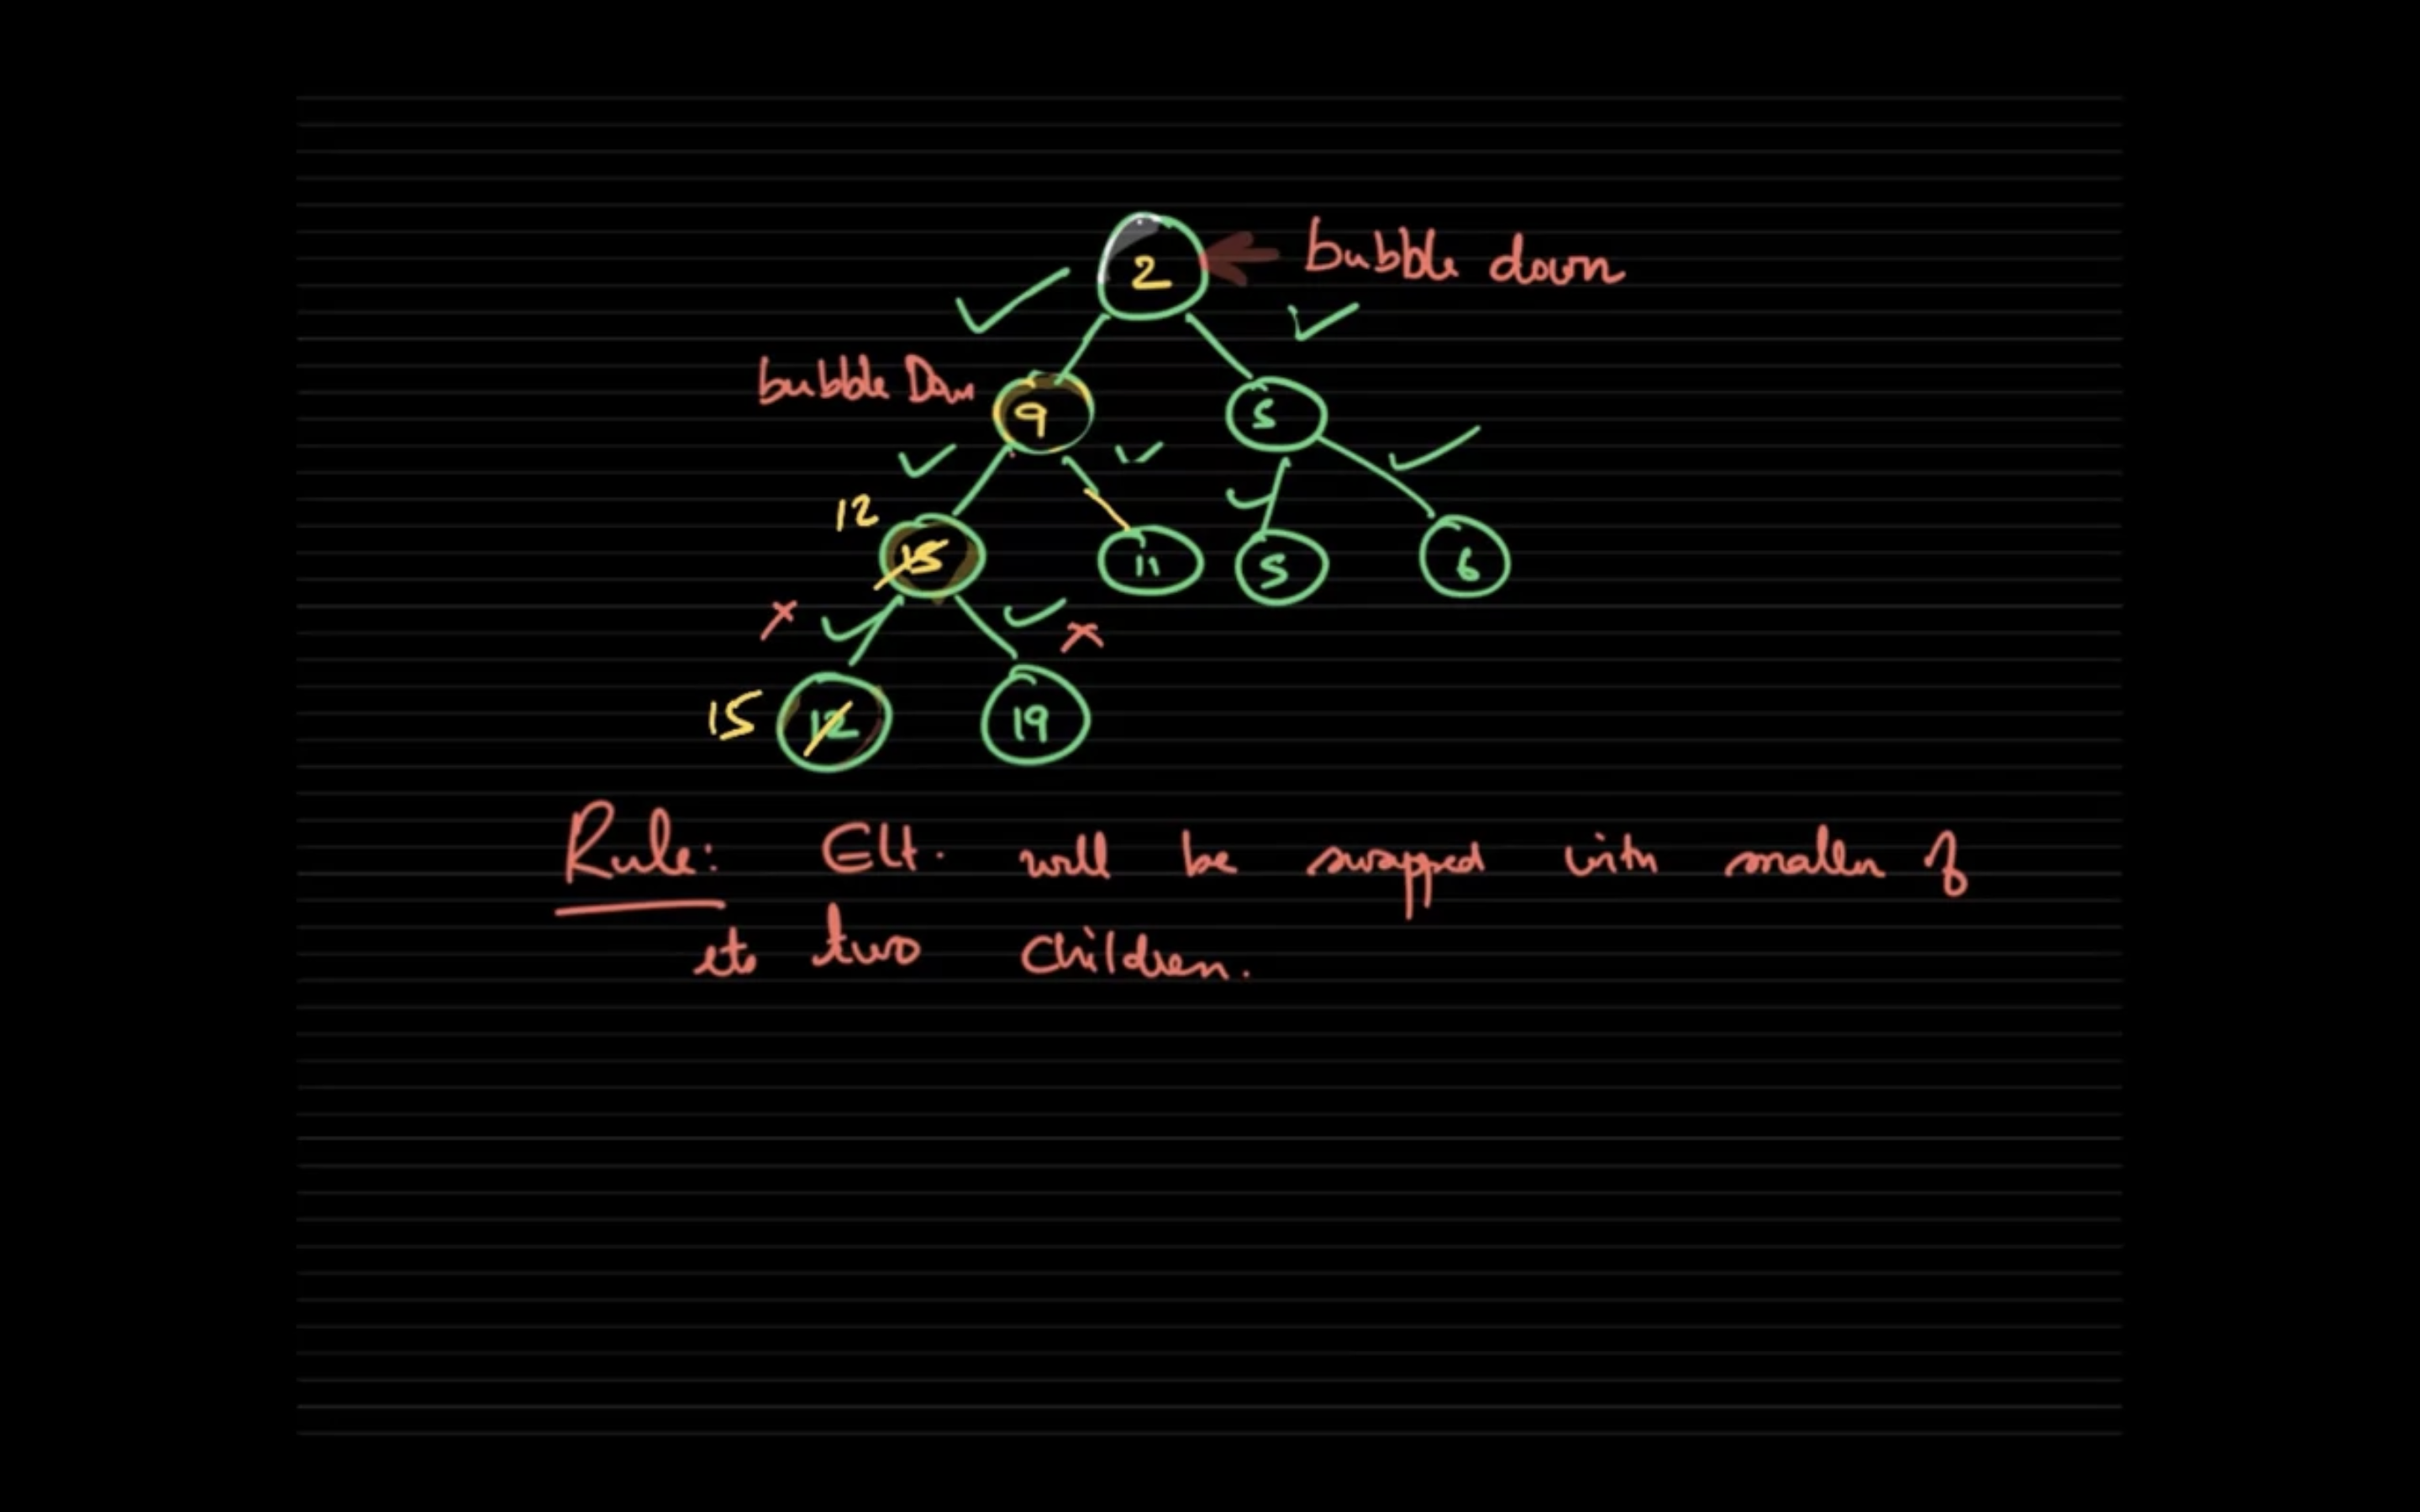 2 bubble down
bubble Down
9 5
12
15 11 5 6
15 12 19
Rule: Elt. will be swapped with smaller of
its two children.